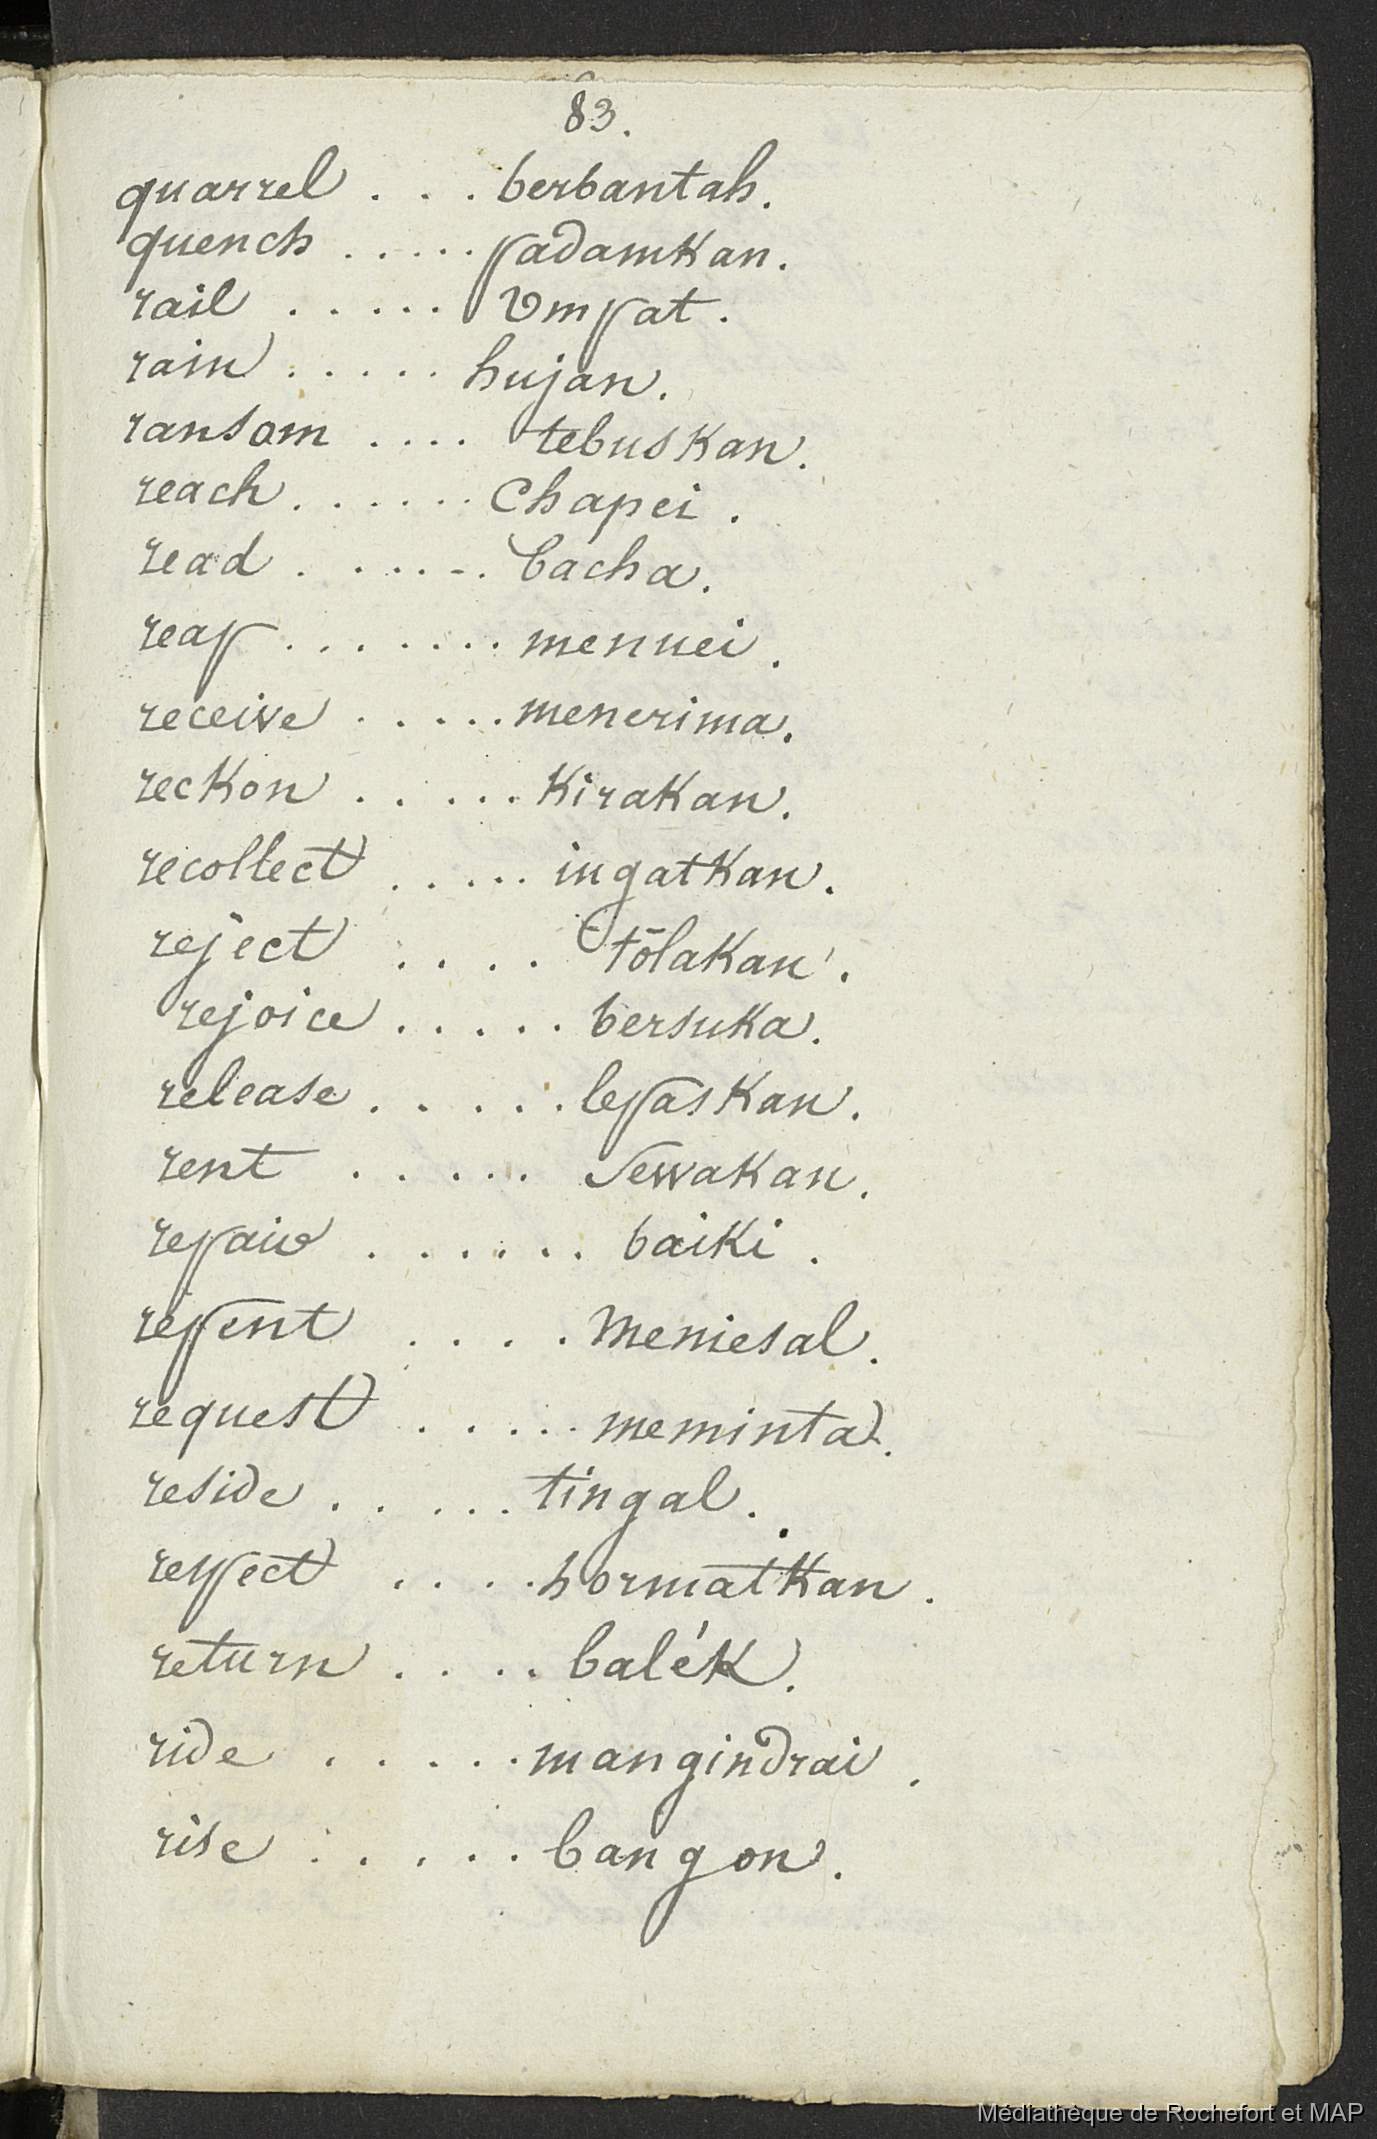 83.
quarrel . . . berbantah.
quench . . . . . padamkan.
rail . . . . . Umpat.
rain . . . . . hujan.
ransom . . . . tebuskan.
reach . . . . . . Chapei.
read . . . . . . bacha.
reap . . . . . . . menuei.
receive . . . . . menerima.
reckon . . . . . kirakan.
recollect . . . . . ingatkan.
reject . . . . tōlakan.
rejoice . . . . . bersuka.
release . . . . . lepaskan.
rent . . . . . Sewakan.
repair . . . . . . baiki.
repent . . . . meniesal.
request . . . . . meminta.
reside . . . . . tingal.
respect . . . . hormatkan.
return . . . . balék.
ride . . . . . mangindrai.
rise . . . . . bangon.
Médiathèque de Rochefort et MAP